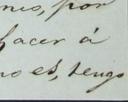 nes, por
hacer á
no es, tengo